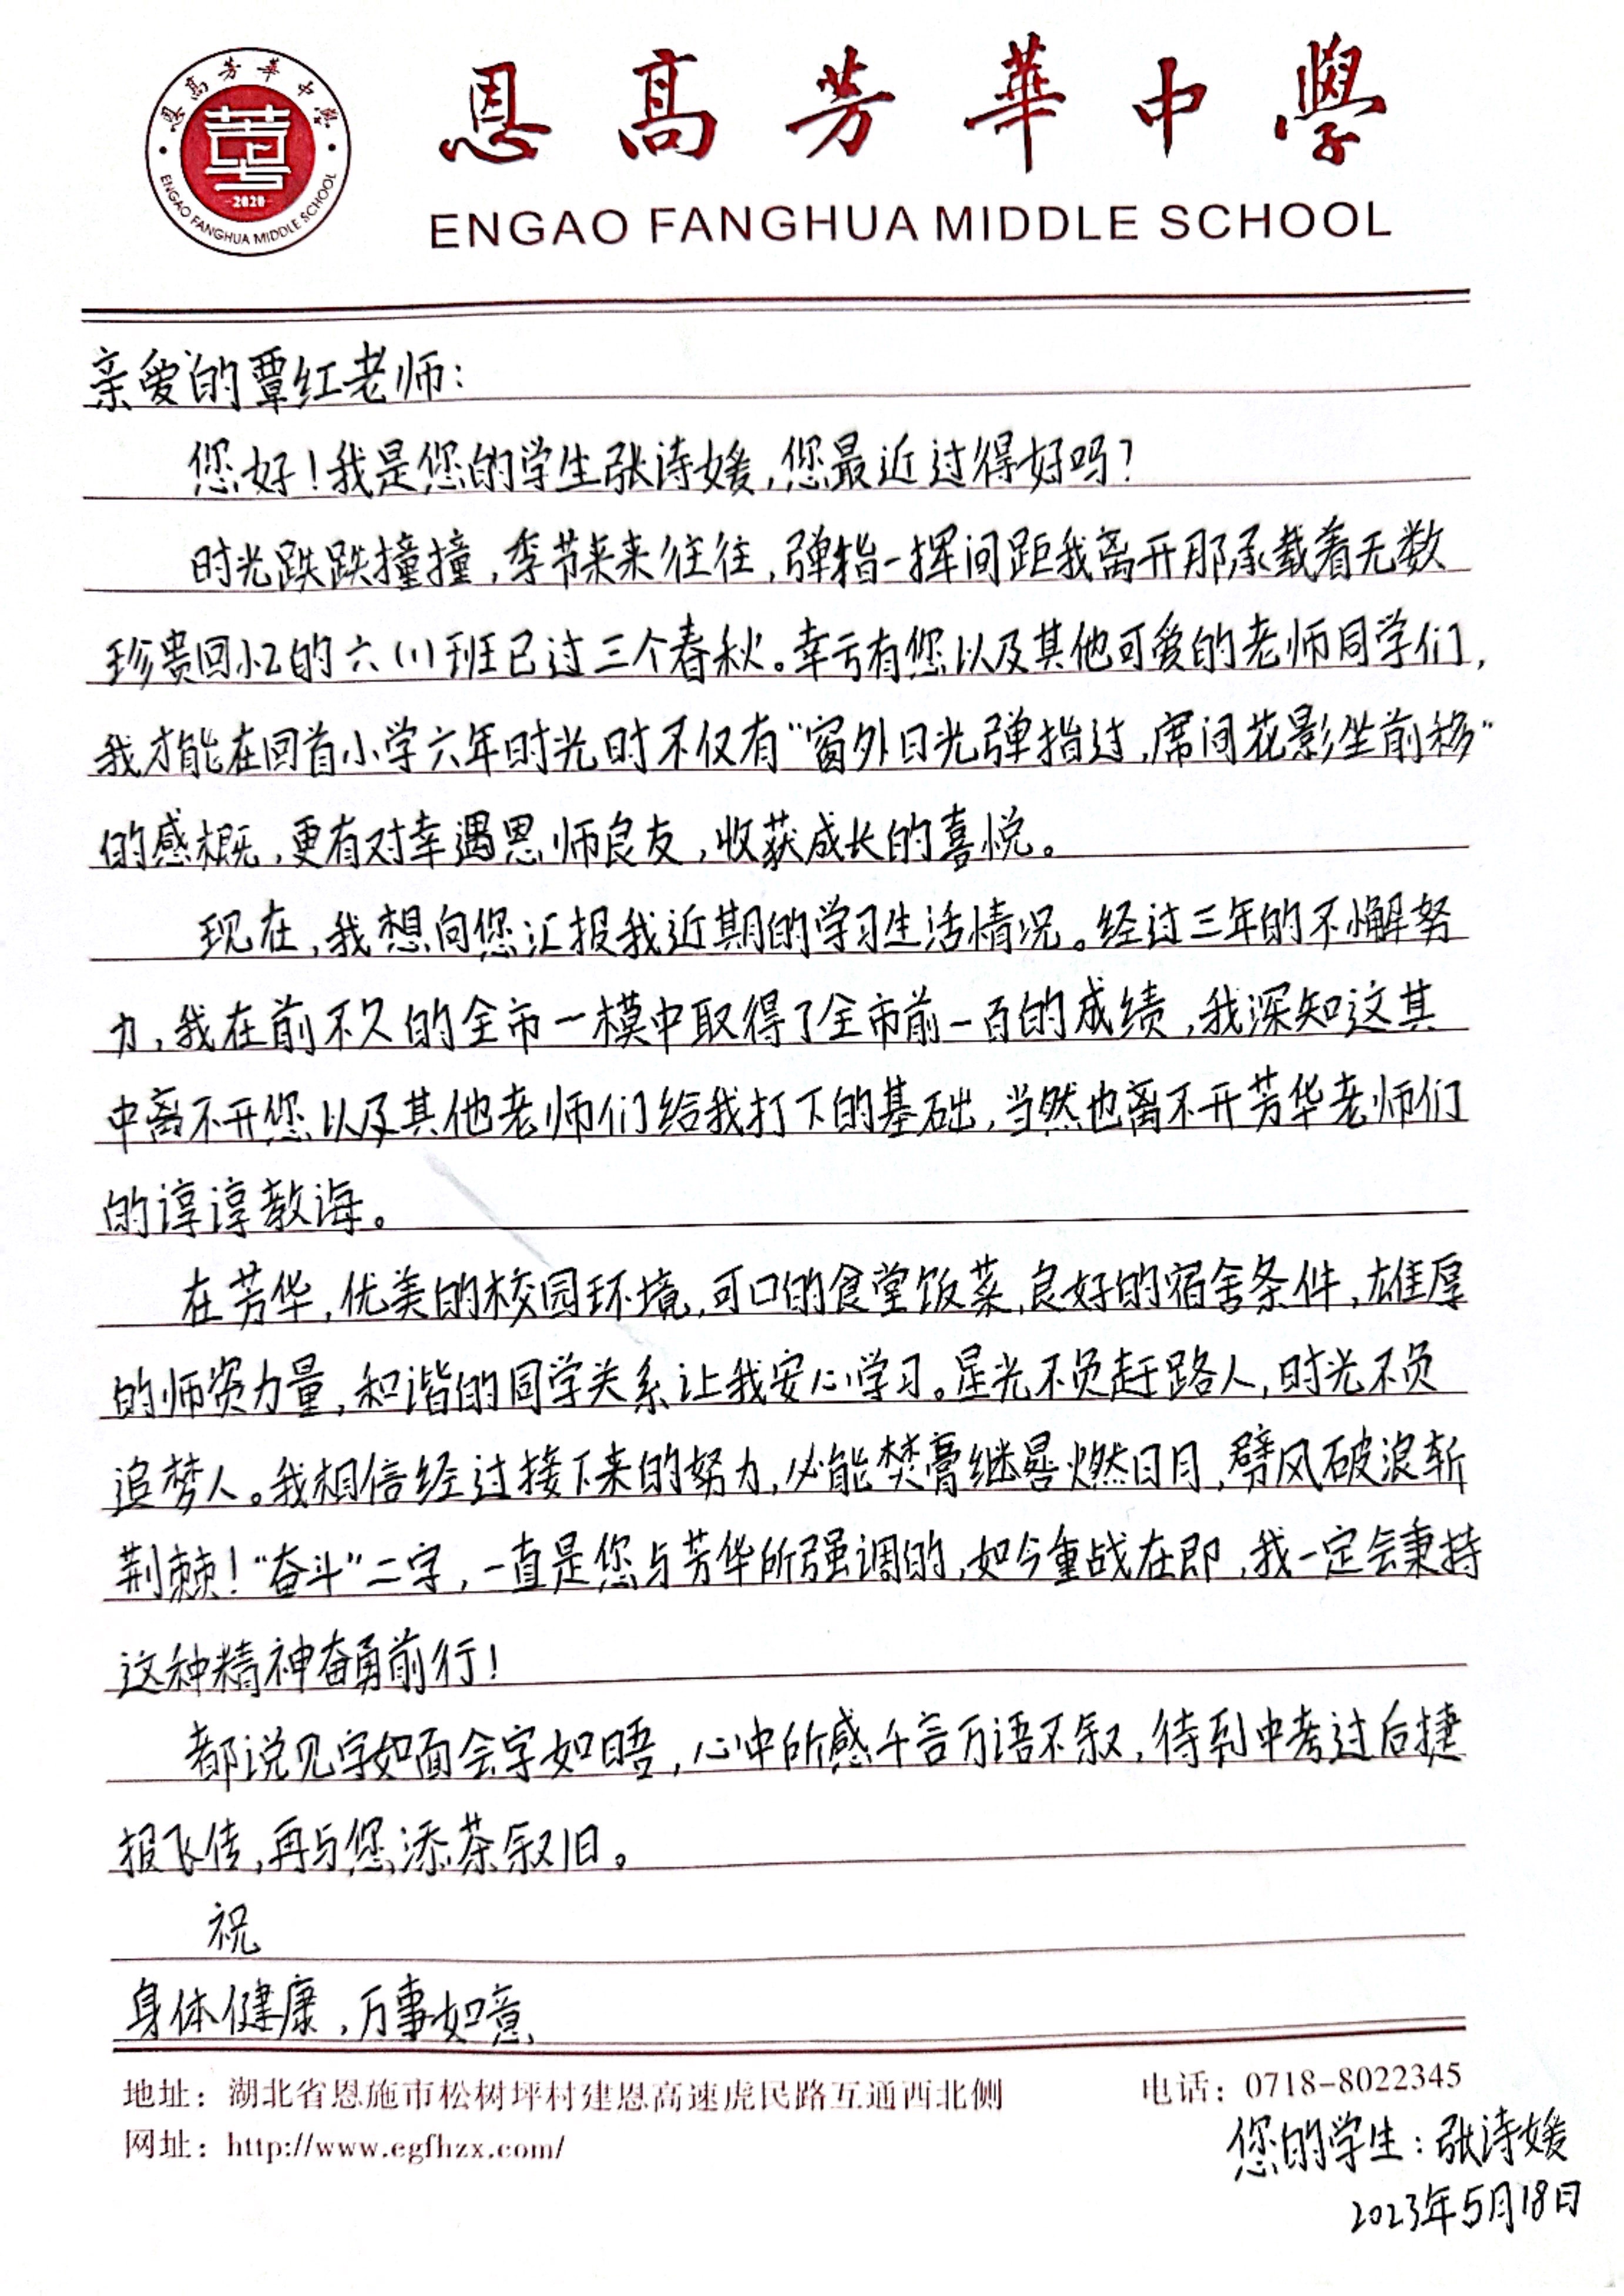 恩高芳華中學
恩高芳華中學
2020
ENGAO FANGHUA MIDDLE SCHOOL
ENGAO FANGHUA MIDDLE SCHOOL
亲爱的覃红老师：
您好！我是您的学生张诗媛，您最近过得好吗？
时光跌跌撞撞，季节来来往往，弹指一挥间距我离开那承载着无数
珍贵回忆的六(1)班已过三个春秋。幸亏有您以及其他可爱的老师同学们，
我才能在回首小学六年时光时不仅有“窗外日光弹指过，席间花影坐前移”
的感概，更有对幸遇恩师良友，收获成长的喜悦。
现在，我想向您汇报我近期的学习生活情况。经过三年的不懈努
力，我在前不久的全市一模中取得了全市前一百的成绩，我深知这其
中离不开您以及其他老师们给我打下的基础，当然也离不开芳华老师们
的谆谆教诲。
在芳华，优美的校园环境，可口的食堂饭菜，良好的宿舍条件，雄厚
的师资力量，和谐的同学关系让我安心学习。星光不负赶路人，时光不负
追梦人。我相信经过接下来的努力，必能焚膏继晷燃日月，劈风破浪斩
荆棘！“奋斗”二字，一直是您与芳华所强调的，如今重战在即，我一定会秉持
这种精神奋勇前行！
都说见字如面会字如晤，心中所感千言万语不叙，待到中考过后捷
报飞传，再与您添茶叙旧。
祝
身体健康，万事如意
地址：湖北省恩施市松树坪村建恩高速虎民路互通西北侧
电话：0718-8022345
网址：http://www.egfhzx.com/
您的学生：张诗媛
2023年5月18日